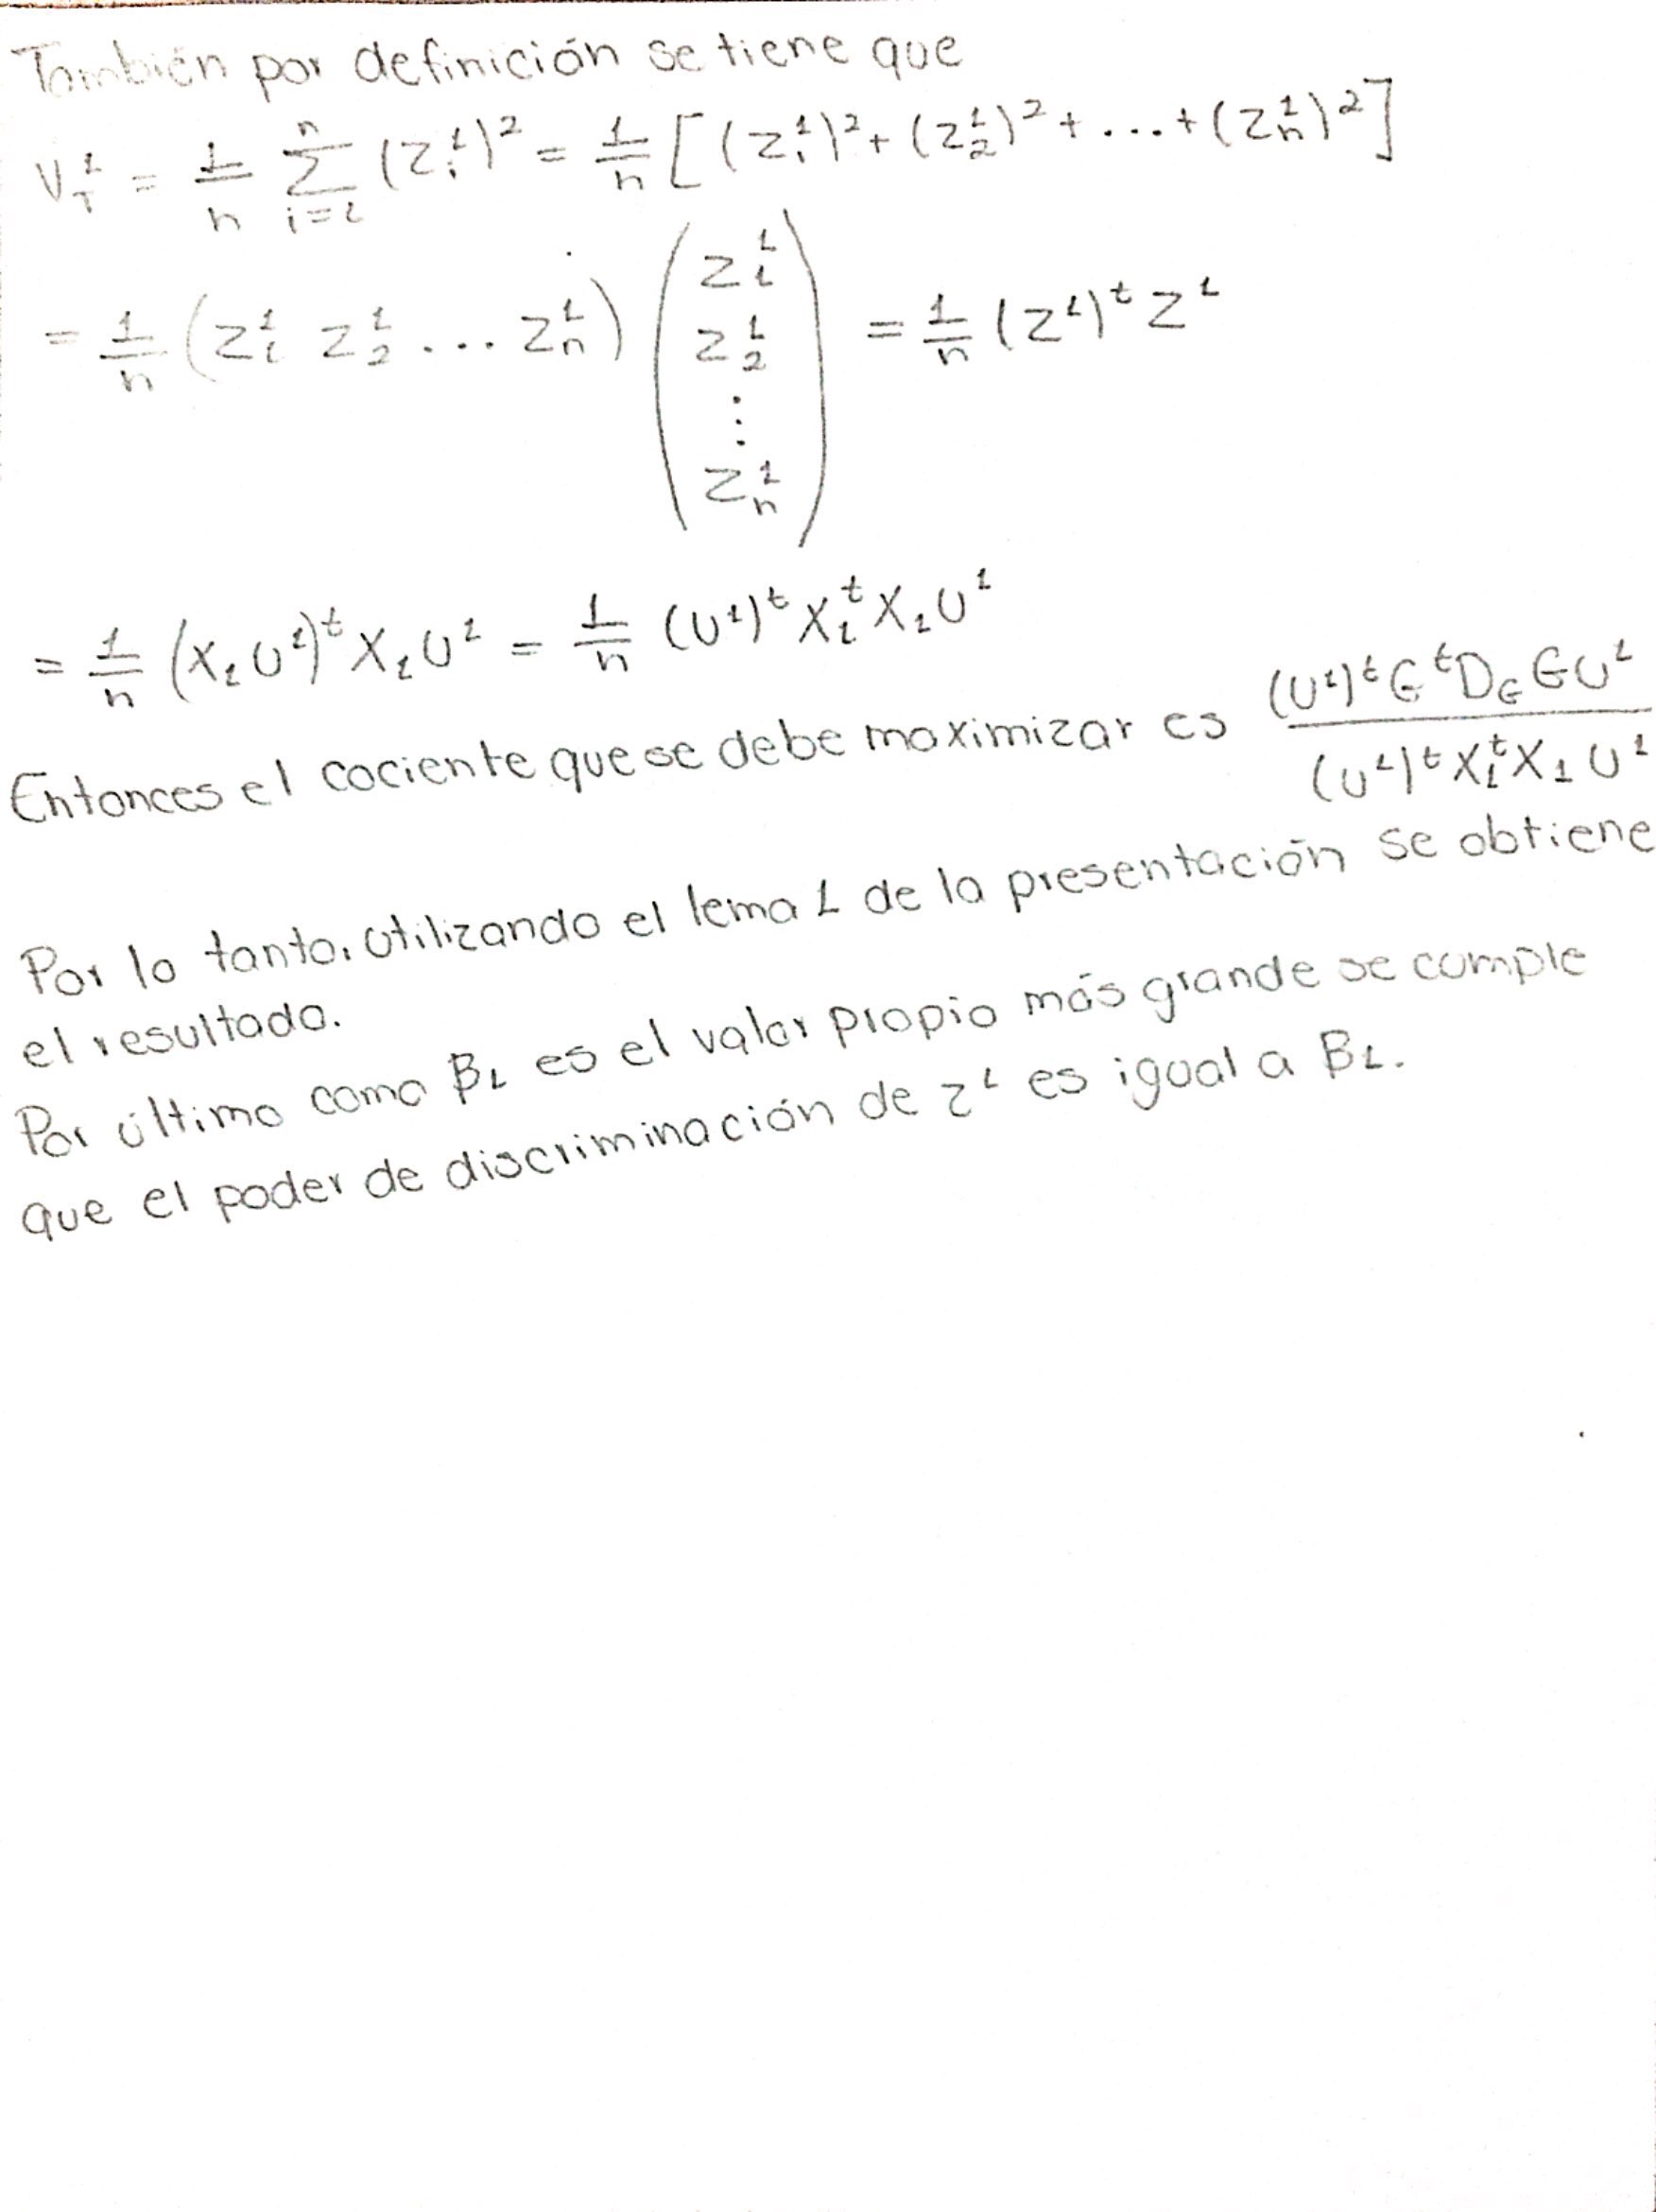 También por definición se tiene que
V_T^1 = 1/n Σ_{i=1}^{n} (Z_i^1)^2 = 1/n [(Z_1^1)^2 + (Z_2^1)^2 + ... + (Z_n^1)^2]
= 1/n (Z_1^1 Z_2^1 ... Z_n^1) (Z_1^1 Z_2^1 ⋮ Z_n^1) = 1/n (Z^1)^t Z^1
= 1/n (X_1 U^1)^t X_1 U^1 = 1/n (U^1)^t X_1^t X_1 U^1
Entonces el cociente que se debe maximizar es (U^1)^t G^t D_G G U^1 / (U^1)^t X_1^t X_1 U^1
Por lo tanto, utilizando el lema 1 de la presentación se obtiene
el resultado.
Por último como β1 es el valor propio más grande se cumple
que el poder de discriminación de z^1 es igual a β1.